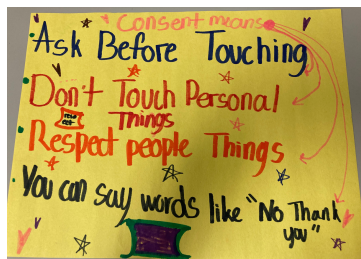 Consent means
Ask Before Touching
Don't Touch Personal
Things
Respect people Things
You can say words like "No Thank
you"